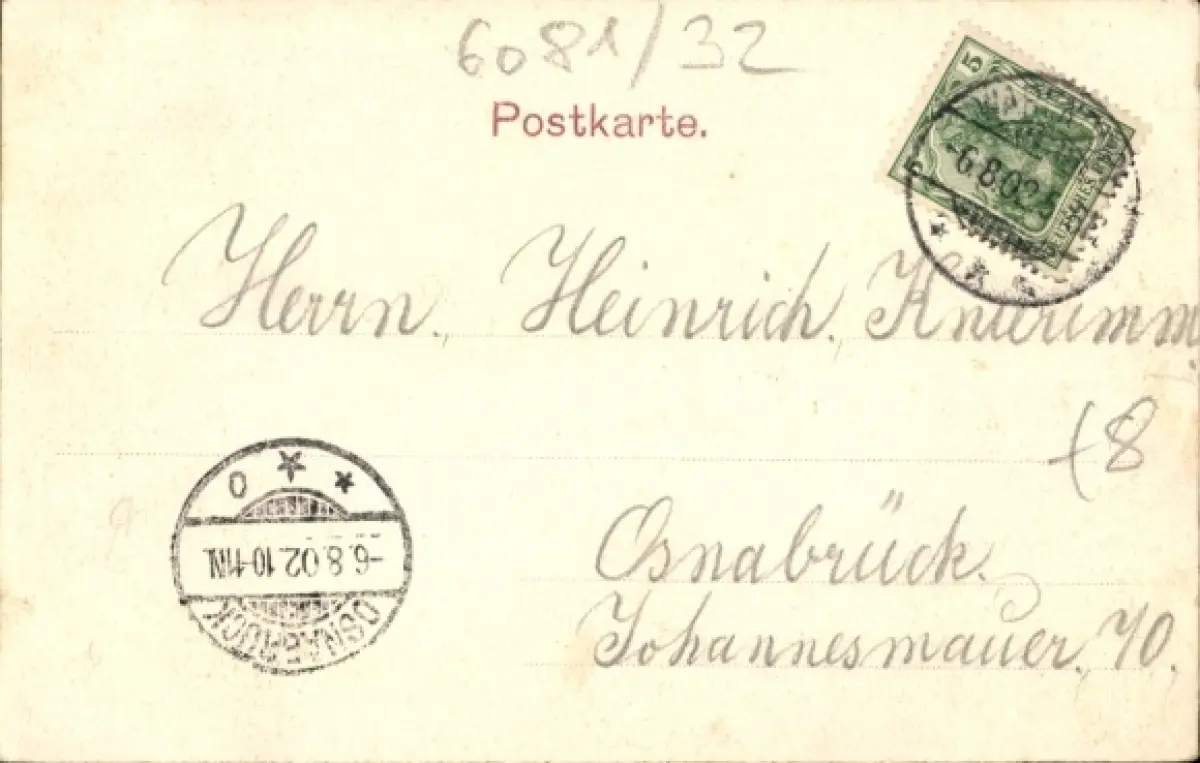 6081/32
Postkarte.
5
5
-6.8.02
Herrn. Heinrich.
8
-6.8.02.10-11N.
OSNABRÜCK
Osnabrück.
Johannesmauer.